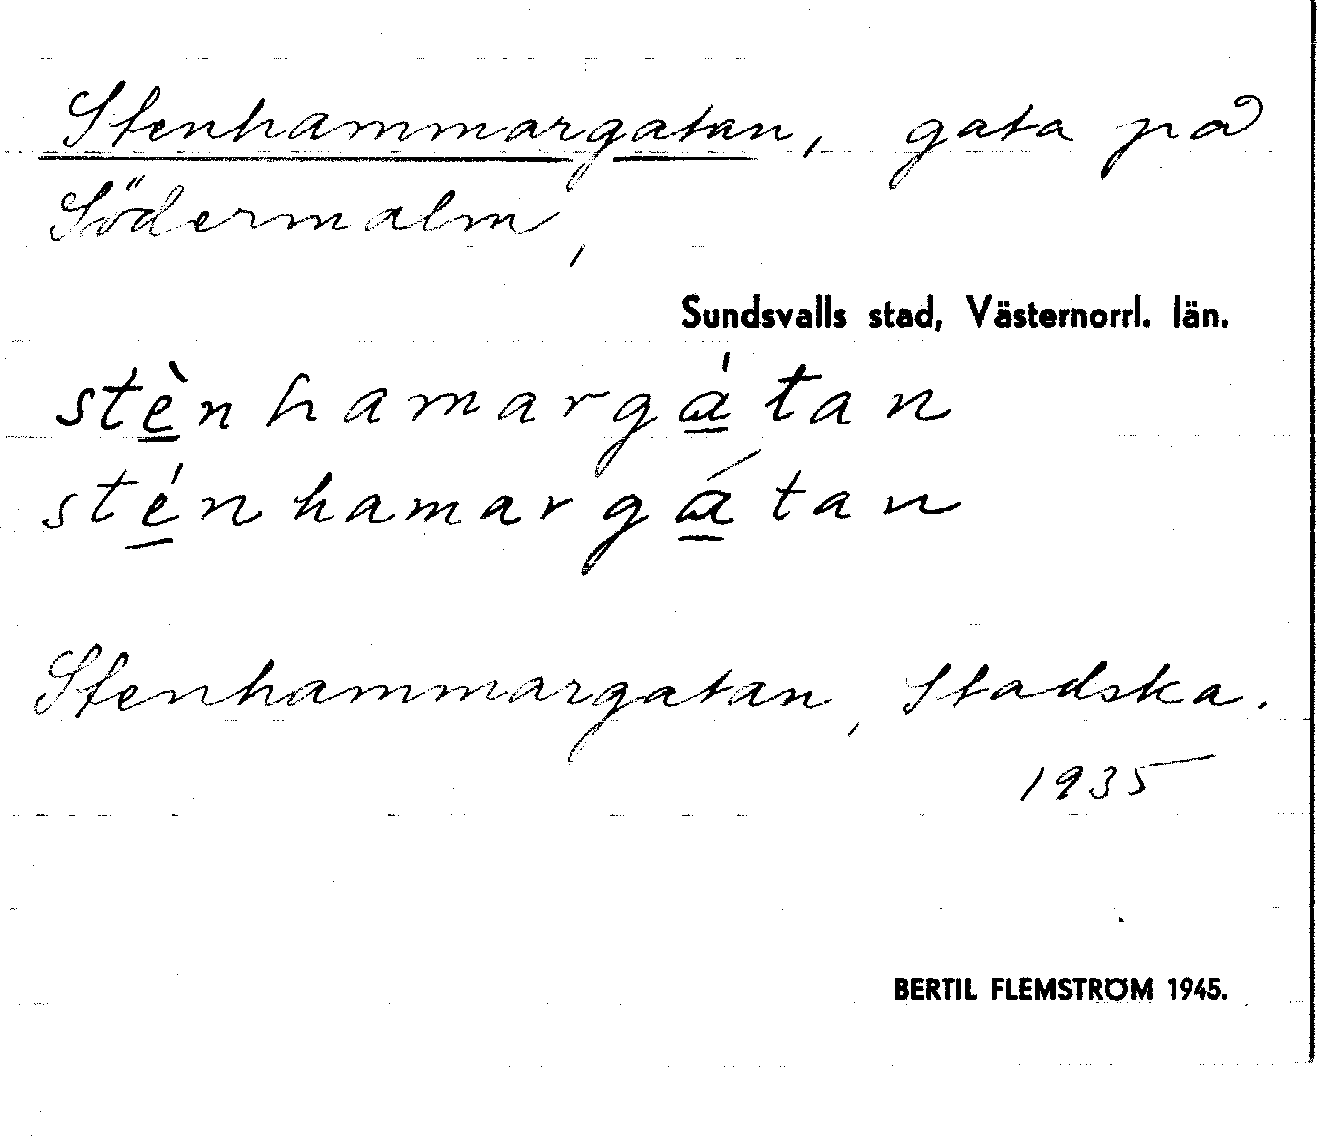 Stenhammargatan, gata på
Södermalm,
Sundsvalls stad, Västernorrl. län.
stè̲nhamargá̲tan
sté̲nhamargá̲tan
Stenhammargatan, Stadska.
1935
BERTIL FLEMSTRÖM 1945.